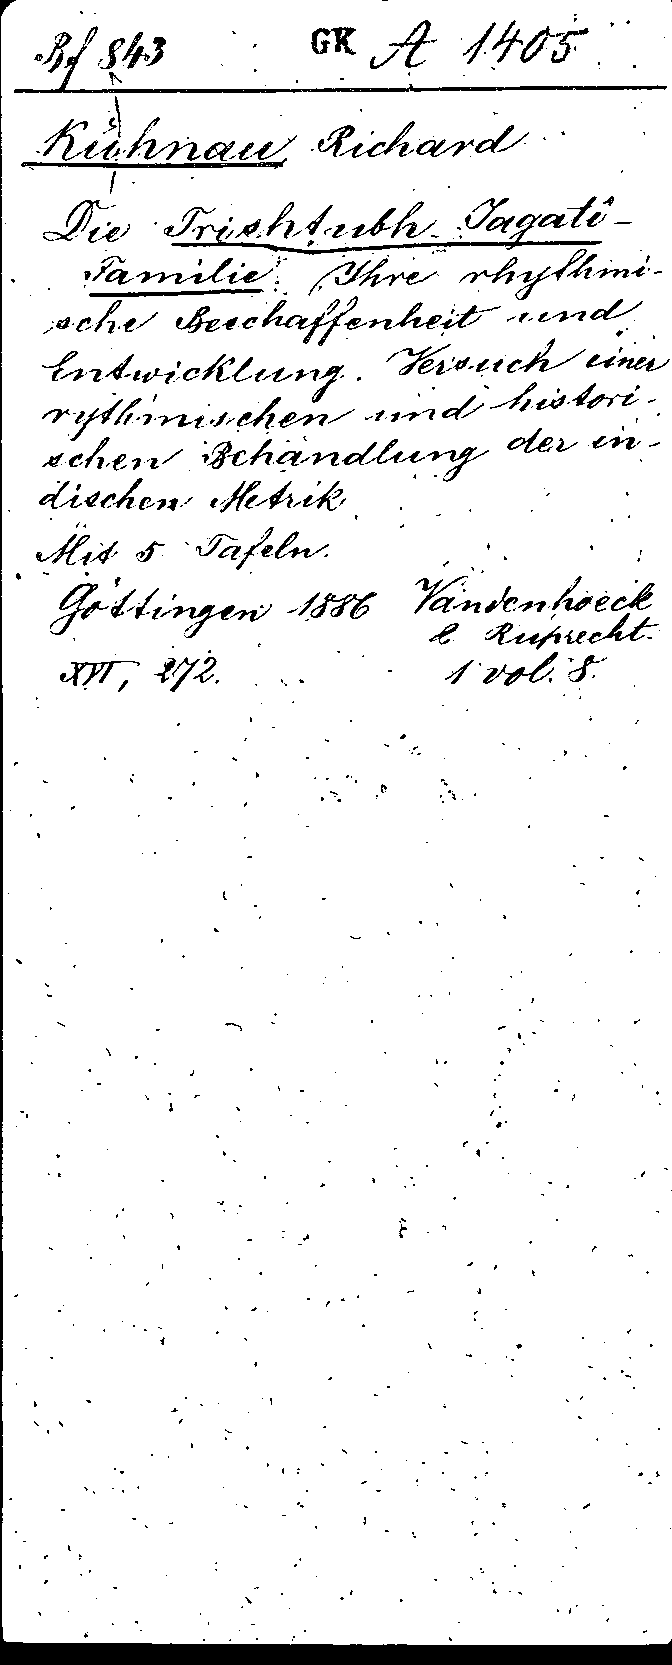 Bf 843 GK A 1405
Kühnau, Richard
Die Trishtubh-Jagatî-
Familie. Ihre rhythmi-
sche Beschaffenheit und
Entwicklung. Versuch einer
rythmischen und histori-
schen Behandlung der in-
dischen Metrik
Mit 5 Tafeln.
Göttingen 1886 Vandenhoeck
& Ruprecht.
XVI, 272. 1 vol. 8.